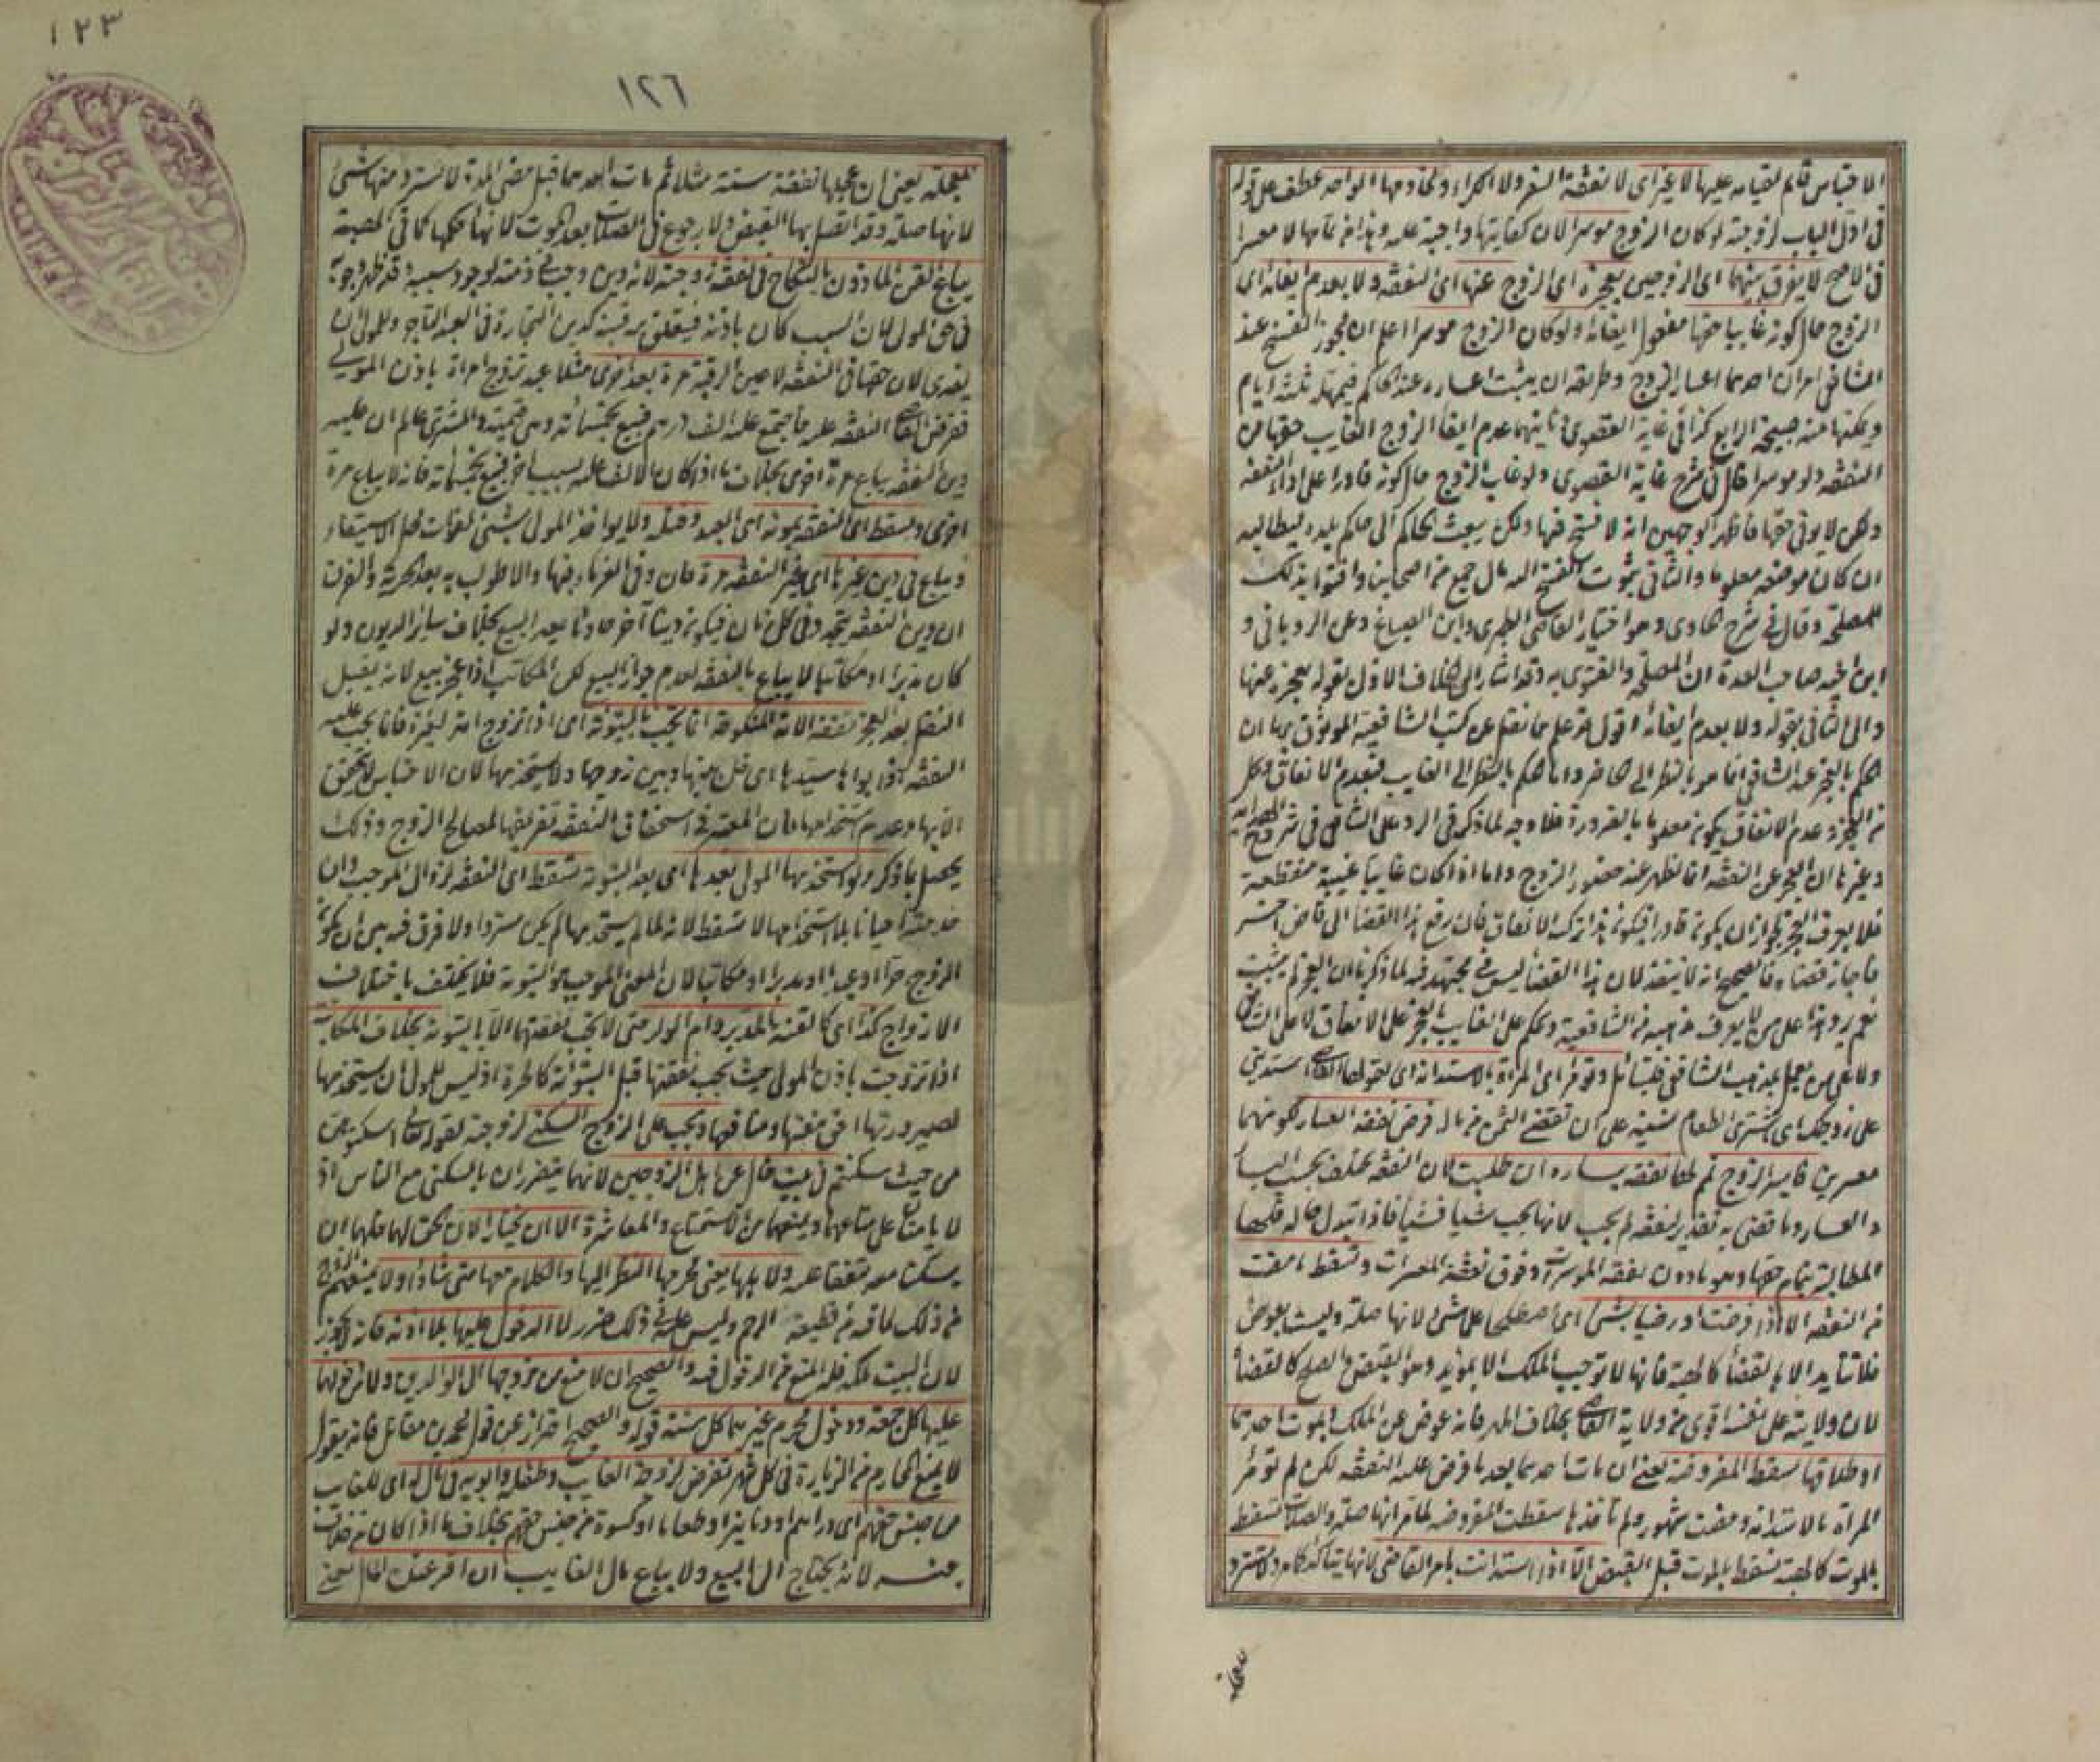 الاحتباس قائم لقيامه عليها لا غير اى لا نفقة السفر ولا الكراء ولخادمها الواحد عطف على قوله
فى اول الباب لزوجته لو كان الزوج موسرا لان كفايتها واجبة عليه وهذا من تمامها لا معسرا
فى الاصح لا يفرق بينهما اى الزوجين بعجزه اى الزوج عنها اى النفقة ولا بعدم ايفائه اى
الزوج حال كونه غايبا حقها مفعول ايفائه ولو كان الزوج موسرا اعلم ان مجوز الفسخ عند
الشافعى امران احدهما اعسار الزوج وطريقه ان يثبت اعساره عند الحاكم فيمهله ثلثة ايام
ويمكنها منه صبيحة الرابع كذا فى غاية القصوى ثانيهما عدم ايفاء الزوج الغايب حقها من
النفقة ولو موسرا قال فى شرح غاية القصوى ولو غاب الزوج حال كونه قادرا على اداء النفقة
ولكن لا يوفى حقها فاظهر الوجهين انه لا فسخ فيها ولكن يبعث الحاكم الى حاكم بلده ليطالبه
ان كان موضعه معلوما والثانى ثبوت الفسخ اليه مال جمع من اصحابنا وافتوا بذلك
للمصلحة وقال فى شرح الحاوى وهو اختيار القاضى الطبرى وابن الصباغ وعن الرويانى و
ابن اخيه صاحب العدة ان المصلحة والفتوى به وقد اشار الى الخلاف الاول بقوله بعجزه عنها
والى الثانى بقوله ولا بعدم ايفائه اقول قد علم مما نقل عن كتب الشافعية الموثوق بها ان
الحكم بالعجز عند الشافعى انما هو بالنظر الى الحاضر واما الحكم بالنظر الى الغايب فبعدم الانفاق وكل
من العجز وعدم الانفاق يكون معلوما بالضرورة فلا وجه لما ذكر فى الرد على الشافعى فى شروح الهداية
وغيرها ان العجز عن النفقة انما يظهر عند حضور الزوج واما اذا كان غايبا غيبة منقطعة
فلا يعرف العجز لجواز ان يكون قادرا فيكون هذا ترك الانفاق فان رفع هذا القضا الى قاض اخر
فاجاز قضاه فالصحيح انه لا ينفذ لان هذا القضا ليس فى مجتهد فيه لما ذكرنا ان العجز لم يثبت
نعم يرد هذا على من لا يعرف مذهبه من الشافعية ويحكم على الغايب بالعجز على الانفاق لا على الشافعى
ولا على من يعمل بمذهب الشافعى فليتأمل وتؤمر اى المراة بالاستدانة اى يقول لها القاضى استدينى
على زوجك اى اشترى الطعام نسيئة على ان تقضى الثمن من ماله فرض نفقة العسار لكونهما
معسرين فايسر الزوج تمم لها نفقة يساره ان طلبت لان النفقة تختلف بحسب اليسار
والعسار وما قضى به تقدير لنفقة لم تجب لانها تجب شيأ فشيأ فاذا تبدل حاله فلها
المطالبة بتمام حقها وهو ما دون نفقة الموسرات وفوق نفقة المعسرات وتسقط ما مضت
من النفقة الا اذا فرضت او رضيا بشئ اى اصطلحا على شئ لانها صلة وليست بعوض
فلا تتأيد الا بالقضأ كالهبة فانها لا توجب الملك الا بمؤيد وهو القبض والصلح كالقضأ
لان ولايته على نفسه اقوى من ولاية القاضى بخلاف المهر فانه عوض عن الملك بموت احدهما
او طلاقها تسقط المفروضة يعنى ان مات احدهما بعد ما فرض عليه النفقة لكن لم تؤمر
المراة بالاستدانة ومضت شهور ولم تأخذها سقطت المفروضة لما مر انها صلة والصلات تسقط
بالموت كالهبة تسقط بالموت قبل القبض الا اذا استدانت بامر القاضى لانها تتأكد كما مر ولا تسترد
المعجلة
١٢٣
١٢٦
المعجلة يعنى ان عجلها نفقة سنة مثلا ثم مات احدهما قبل مضى المدة لا تسترد منها شئ
لانها صلة وقد اتصل بها القبض ولا رجوع فى الصلات بعد الموت لانتهاء حكمها كما فى الهبة
يباع القن المأذون بالنكاح فى نفقة زوجته لانه دين وجب فى ذمته لوجود سببه وقد ظهر وجوبه
فى حق المولى لان السبب كان باذنه فيتعلق برقبته كدين التجارة فى العبد التاجر وللمولى ان
يفدى لان حقها فى النفقة لا عين الرقبة مرة بعد اخرى مثلا عبد تزوج امراة باذن المولى
ففرض القاضى النفقة عليه فاجتمع عليه الف درهم فبيع بخمسمائة وهى قيمته والمشترى عالم ان عليه
دين النفقة يباع مرة اخرى بخلاف ما اذا كان الالف عليه بسبب اخر فبيع بخمسمائة فانه لا يباع مرة
اخرى وتسقط اى النفقة بموته اى العبد وقتله ولا يؤاخذ المولى بشئ لفوات محل الاستيفاء
ويباع فى دين غيرها اى غير النفقة مرة فان وفى الغرماء فبها والا طولب به بعد الحرية والفرق
ان دين النفقة يتجدد فى كل زمان فيكون دينا آخر حادثا بعد البيع بخلاف سائر الديون ولو
كان مدبرا او مكاتبا لا يباع بالنفقة لعدم جواز البيع لكن المكاتب اذا عجز بيع لانه يقبل
النقل بعد العجز نفقة الامة المنكوحة انما تجب بالتبوئة اى اذا تزوج امة لغيره فانما يجب عليه
النفقة اذا بوأها سيدها اى خلى بينها وبين زوجها ولا يستخدمها لان الاحتباس لا يتحقق
الا بها وعدم استخدامها فان المعتبر فى استحقاق النفقة تفريغها لمصالح الزوج وذلك
يحصل بما ذكر ولو استخدمها المولى بعدها اى بعد التبوئة تسقط اى النفقة لزوال الموجب وان
خدمته احيانا بلا استخدامها لا تسقط لانه لما لم يستخدمها لم يكن مستردا ولا فرق فيه بين ان يكون
الزوج حرا او عبدا او مدبرا او مكاتبا لان المعنى الموجب هو التبوئة فلا يختلف باختلاف
الازواج كذا اى كالقنة المدبرة وام الولد حتى لا تجب نفقتهما الا بالتبوئة بخلاف المكاتبة
اذا تزوجت باذن المولى حيث يجب نفقتها قبل التبوئة كالحرة اذ ليس للمولى ان يستخدمها
لصيرورتها احق بنفسها ومنافعها ويجب على الزوج السكنى لزوجته لقوله تعالى اسكنوهن
من حيث سكنتم فى بيت خال عن اهل الزوجين لانهما يتضرران بالسكنى مع الناس اذ
لا يأمنان على متاعهما ويمنعهما من الاستمتاع والمعاشرة الا ان يختارا لان الحق لهما فلهما ان
يسكنا معه متفقا عليه ولاهلها يعنى محرمها النظر اليها والكلام معها متى شاؤا ولا يمنعهم الزوج
من ذلك لما فيه من قطيعة الرحم وليس عليه فى ذلك ضرر لا الدخول عليها بلا اذنه فانه لا يجوز
لان البيت ملكه فله المنع من الدخول فيه والصحيح ان لا منع من خروجها الى الوالدين ولا من دخولهما
عليها كل جمعة ودخول محرم غيرهما كل سنة قوله والصحيح احتراز عن قول محمد بن مقاتل فانه يقول
لا يمنع المحارم من الزيارة فى كل شهر تفرض لزوجة الغايب وطفله وابويه فى مال له اى للغايب
من جنس حقهم اى دراهم او دنانير او طعاما او كسوة من جنس حقهم بخلاف ما اذا كان من خلاف
جنسه لانه يحتاج الى البيع ولا يباع مال الغايب ان اقر عند المال يعنى